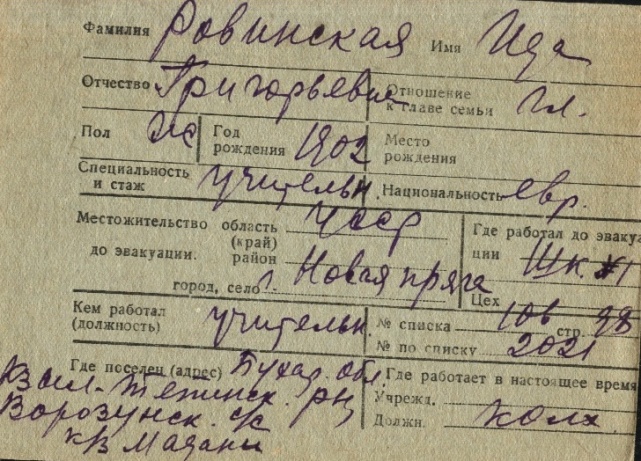 Фамилия Ровинская Имя Ида
Отчество Григорьевна Отношение к главе семьи гл.
Пол ж Год рождения 1902 Место рождения
Специальность и стаж учительн. Национальность евр.
Местожительство область (край) УССР Где работал до эвакуа
до эвакуации. район ции Шк. №1
город, село г. Новая пряга Цех
Кем работал (должность) учительн. № списка 106 стр. 98
№ по списку 2021
Где поселен (адрес) Бухар. обл. Где работает в настоящее время
Кзыл-Тепинск. рн Учрежд.
с/с Должн. колх.
кв